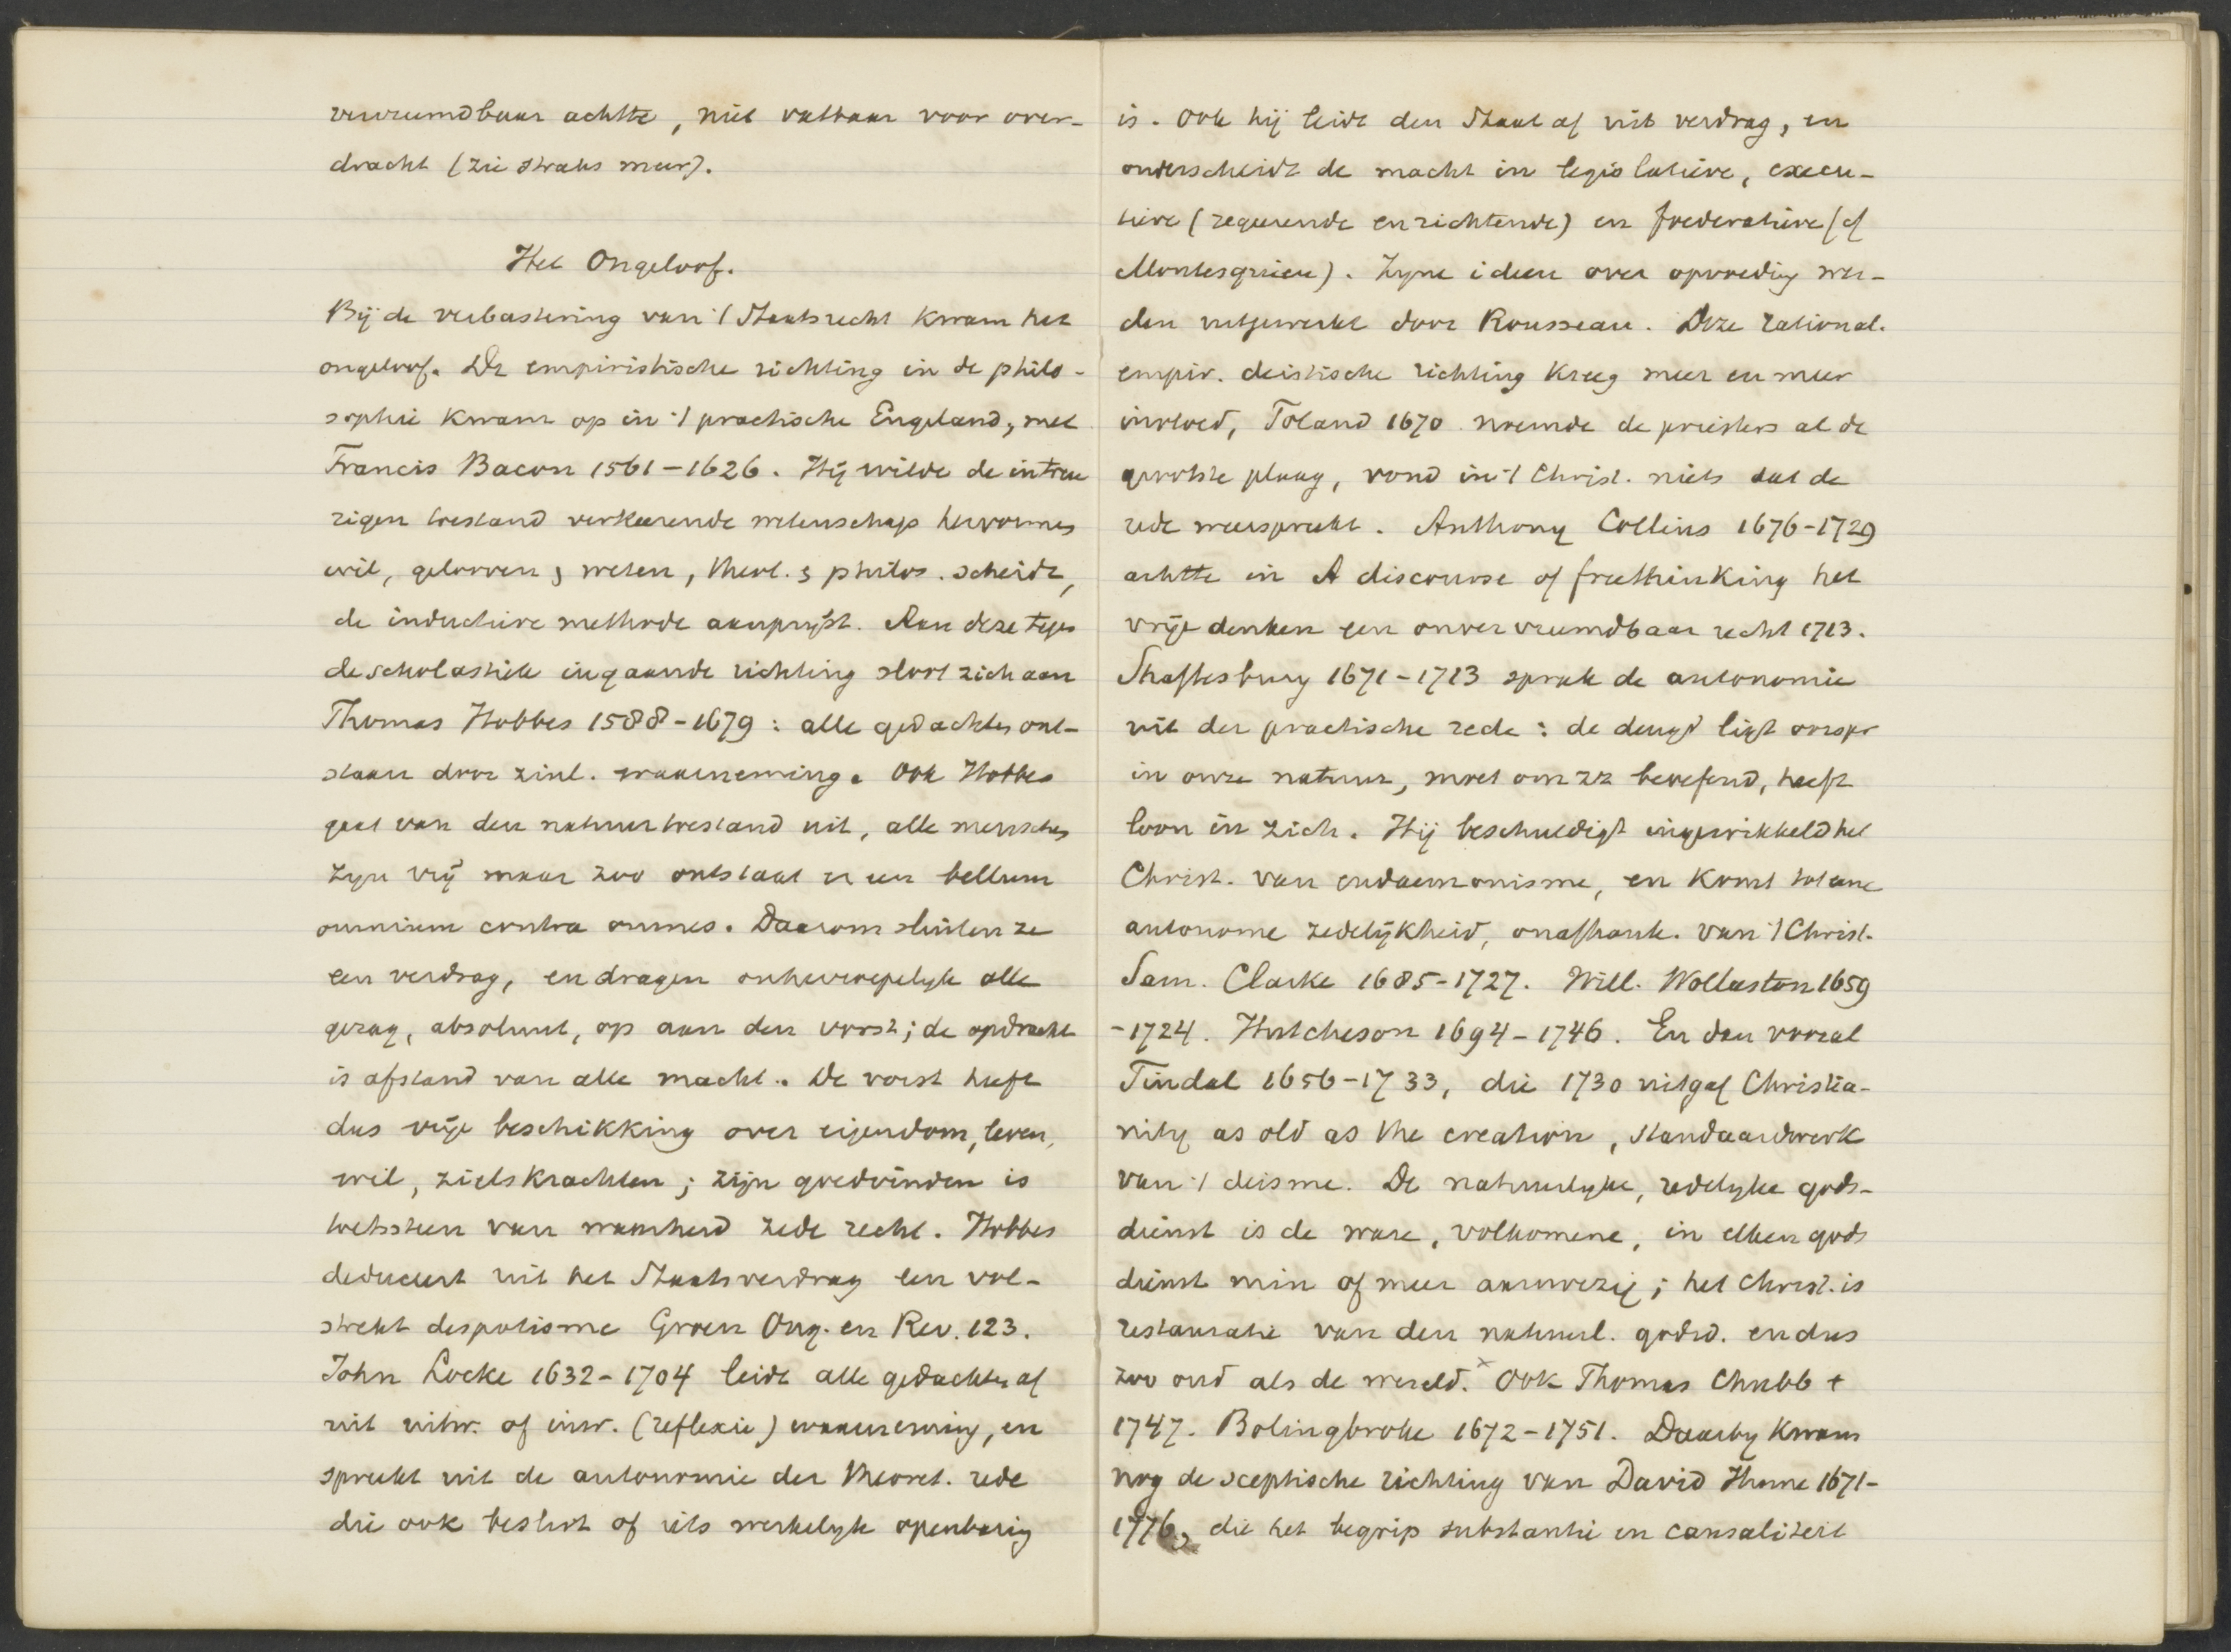 vervreemdbaar achtte, niet vatbaar voor over-
dracht (zie straks meer).
Het Ongeloof.
Bij de verbastering van 't Staatsrecht kwam het
ongeloof. De empiristische richting in de philo-
sophie kwam op in 't practische Engeland, met
Francis Bacon 1561-1626. Hij wilde de in treu
rigen toestand verkeerende wetenschap hervormen
wil, gelooven & weten, theol. & philos. scheidt,
de inductieve methode aanprijst. Aan deze tegen
de scholastiek ingaande richting sloot zich aan
Thomas Hobbes 1588-1679: alle gedachten ont-
staan door zinl. waarneming. Ook Hobbes
gaat van den natuurtoestand uit, alle menschen
zyn vrij maar zoo ontstaat er een bellum
omnium contra omnes. Daarom sluiten ze
een verdrag, en dragen onherroepelyk alle
gezag, absoluut, op aan den vorst; de opdracht
is afstand van alle macht. De vorst heeft
dus vrije beschikking over eigendom, leven,
wil, zielskrachten; zijn goedvinden is
toetssteen van waarheid zede recht. Hobbes
deduceert uit het Staatsverdrag een vol-
strekt despotisme Groen Ong. en Rev. 123.
John Locke 1632-1704 leidt alle gedachten af
uit uitw. of inw. (reflexie) waarneming, en
spreekt uit de autonomie der theoret. rede
die ook beslist of iets werkelyk openbaring
is. Ook hij leidt den Staat af uit verdrag, en
onderscheidt de macht in legislatieve, execu-
tieve (regeerende en richtende) en foederatieve (cf
Montesquieu). Zyne ideeen over opvoeding wer-
den uitgewerkt door Rousseau. Deze rational.
empir. deistische richting kreeg meer en meer
invloed, Toland 1670 noemde de priesters al de
grootste plaag, vond in 't Christ. niets dat de
rede weerspreekt. Anthony Collins 1676-1729
achtte in A discourse of freethinking het
vrije denken een onvervreemdbaar recht 1713.
Shaftesbury 1671-1713 sprak de autonomie
uit der practische rede: de deugd ligt oorspr
in onze natuur, moet om zz beoefend, heeft
loon in zich. Hij beschuldigt ingewikkeld het
Christ. van eudaemonisme, en komt tot eene
autonome zedelijkheid, onafhank. van 't Christ.
Sam. Clarke 1685-1727. Will. Wollaston 1659
-1724. Hutcheson 1694-1746. En dan vooral
Tindal 1656-1733, die 1730 uitgaf Christia-
nity as old as the creation, standaardwerk
van 't deisme. De natuurlyke, redelyke gods-
dienst is de ware, volkomene, in elken gods
dienst min of meer aanwezig; het Christ. is
restauratie van den natuurl. godsd. en dus
zoo oud als de wereld.x Ook Thomas Chubb †
1747. Bolingbroke 1672-1751. Daarby kwam
nog de sceptische richting van David Hume 1671-
1776, die het begrip substantie en causaliteit